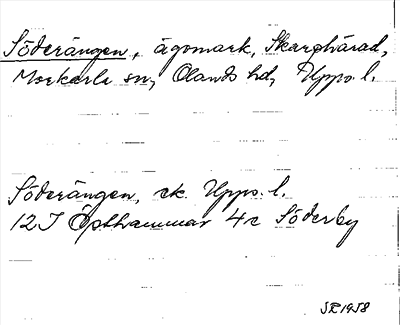 Söderängen, ägomark, Skarghärad,
Morkarla sn, Olands hd, Upps. l.
Söderängen, ek. Upps. l.
12 I Östhammar 4c Söderby
SR 1958